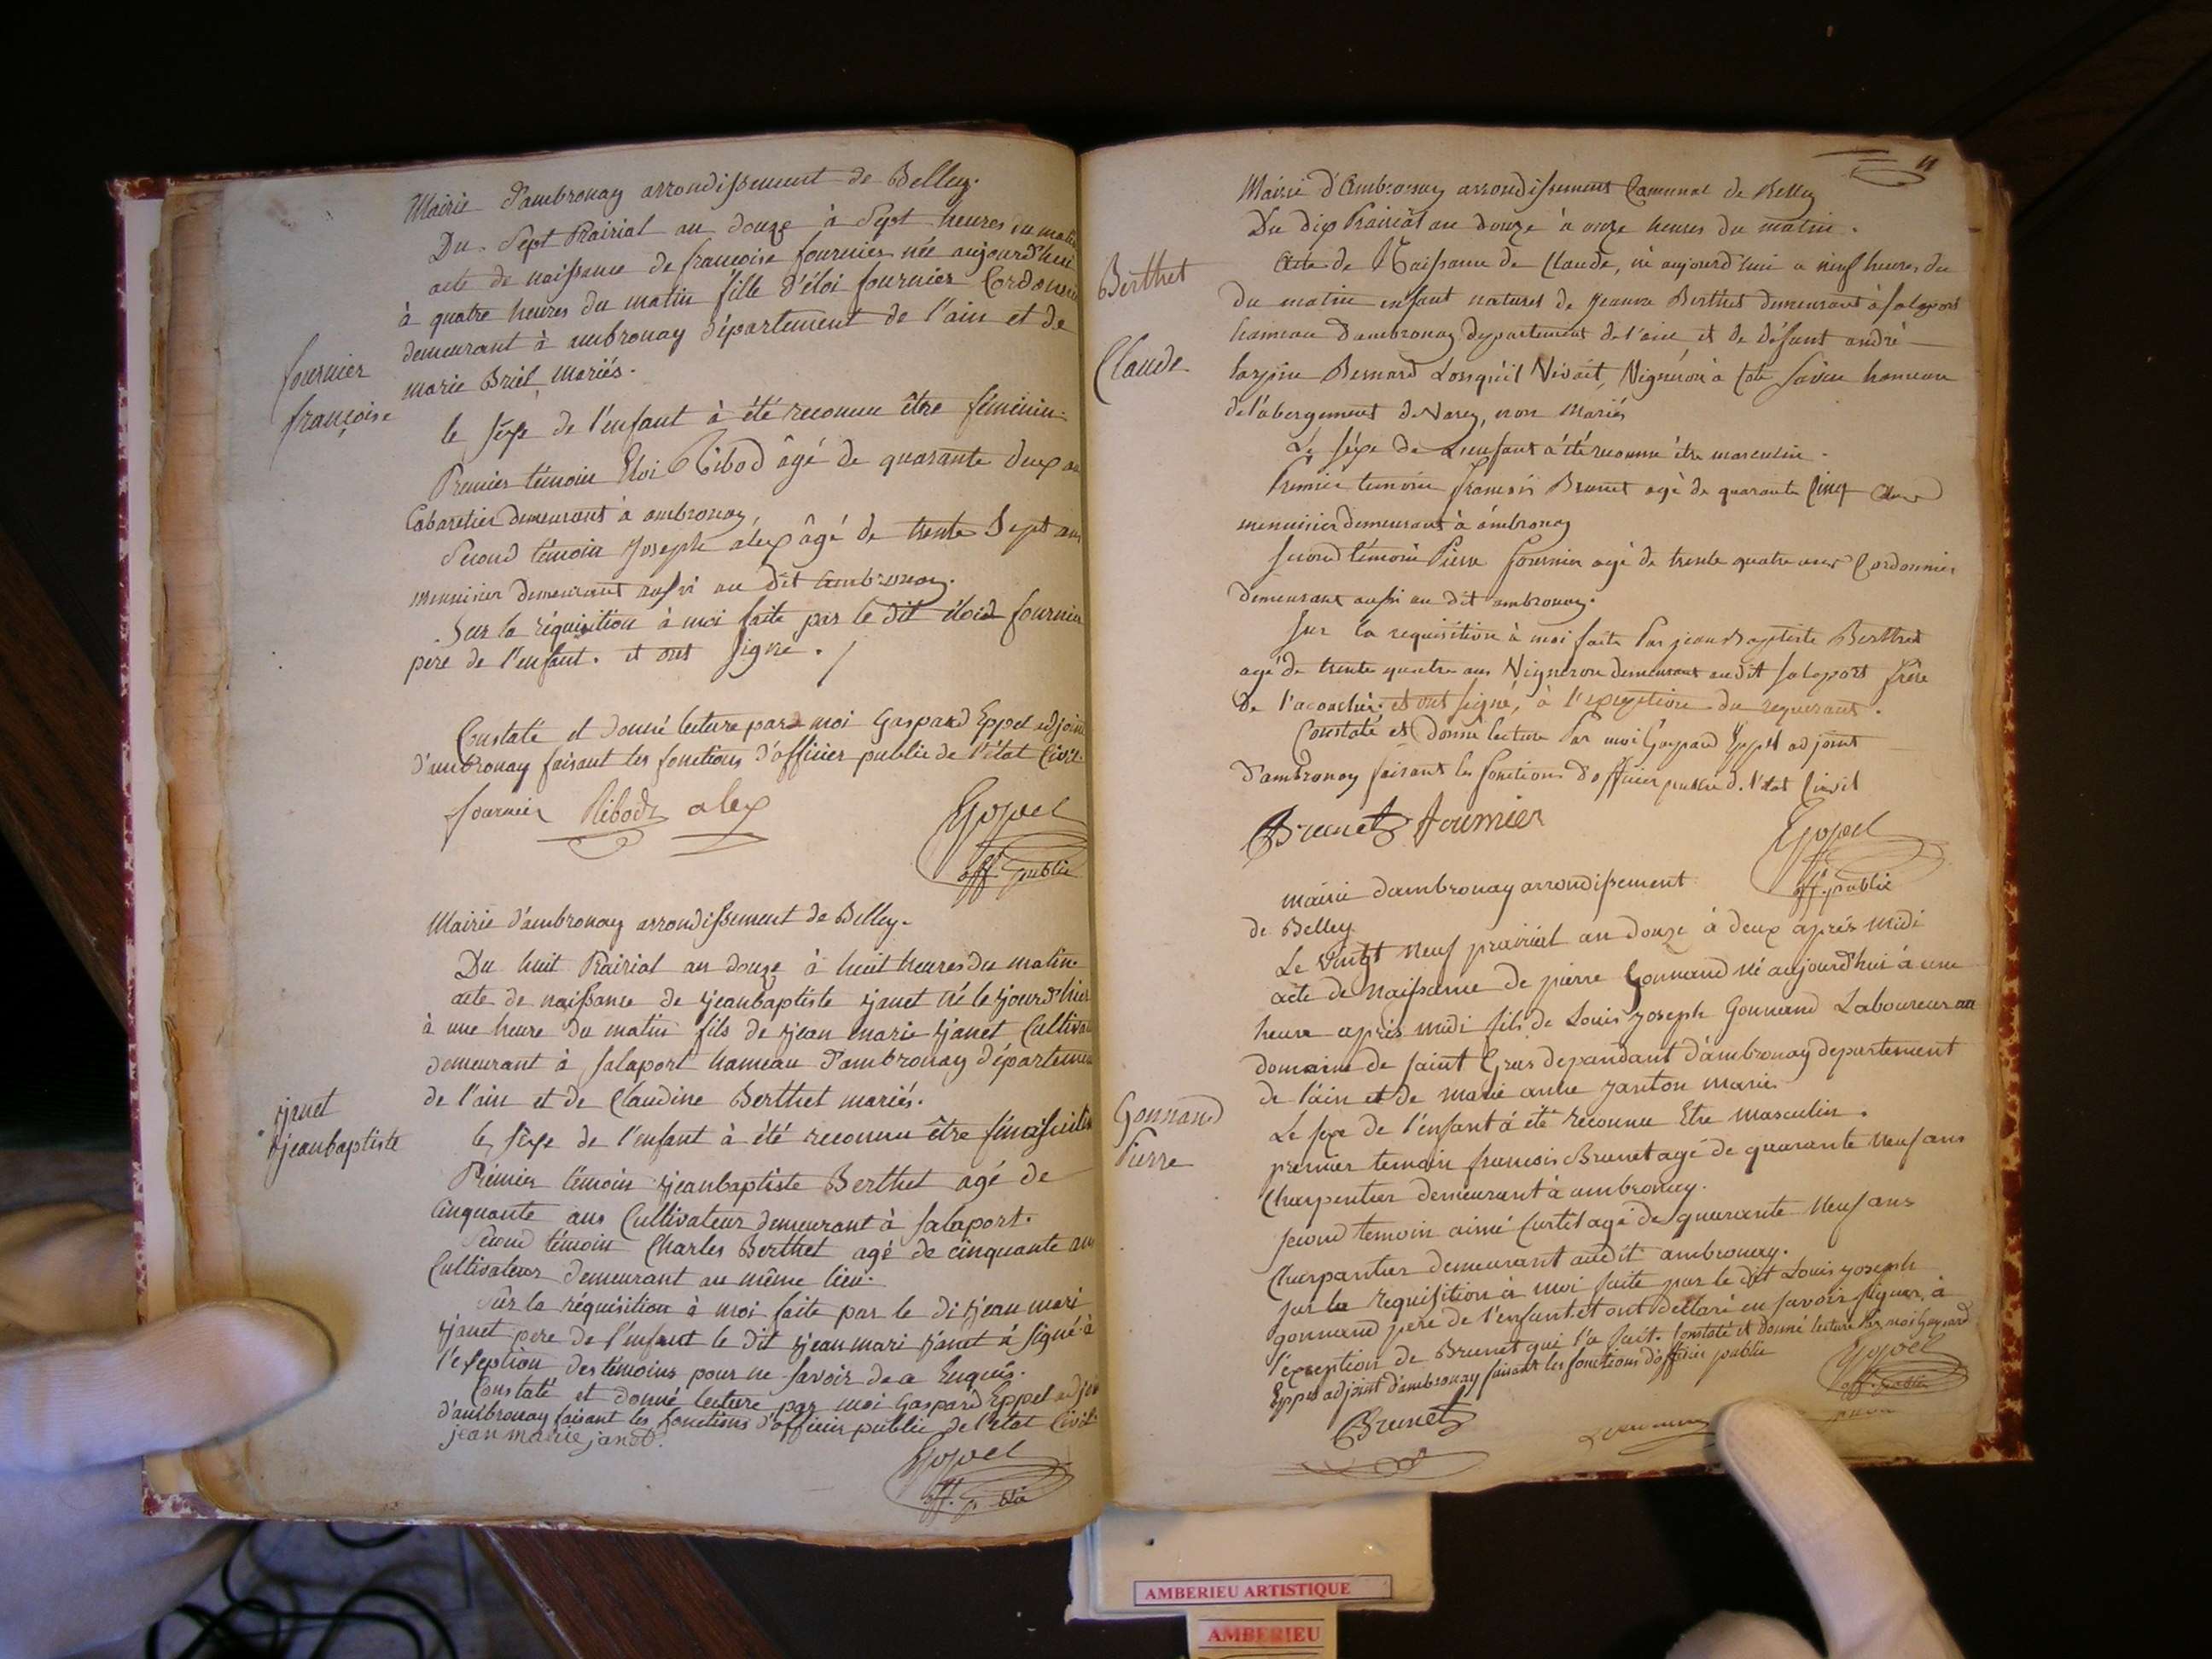 Mairie d'ambronay arrondissement de Belley.
Du Sept Prairial an douze à Sept heures du matin
acte de naissance de francoise fournier née aujourd'hui
à quatre heures du matin fille d'éloi fournier Cordonnier
demeurant à ambronay département de l'ain et de
marie Briel mariés.
fournier
françoise
le sèxe de l'enfant à été reconnu être féminin.
Premier témoin Eloi Ribod âgé de quarante deux ans
Cabaretier demeurant à ambronay,
Second témoin Joseph alex âgé de trente Sept ans
menuisier demeurant aussi au dit ambronay.
Sur la réquisition à moi faite par le dit éloid fournier
pere de l'enfant. et ont signé.
Constaté et donné lecture par moi Gaspard Eppel adjoint
d'ambronay faisant les fonctions d'officier public de l'état Civil.
fournier Ribod alex Eppel
off. public
Mairie d'ambronay arrondissement de Belley.
Du huit Prairial an douze à huit heures du matin
acte de naissance de jeanbaptiste janet né le jourd'hier
à une heure du matin fils de jean marie janet Cultivateur
demeurant à salaport hameau d'ambronay département
de l'ain et de Claudine Berthet mariés.
janet
jeanbaptiste
le sèxe de l'enfant à été reconnu être
Prémier témoin jeanbaptiste Berthet agé de
Cinquante ans Cultivateur demeurant à salaport.
Second témoin Charles Berthet agé de cinquante ans
Cultivateur demeurant au même lieu.
Sur la réquisition à moi faite par le di jean mari
janet pere de l'enfant le dit jean mari janet à signé à
l'exseption des témoins pour ne savoir de ce Enquis.
Constaté et donné lecture par moi Gaspard Eppel adjoint
d'ambronay faisant les fonctions d'officier public de l'état Civil.
jean marie janet.
Eppel
off. public
11
Mairie d'Ambronay arrondissement Communal de Belley
Du dix Prairial an douze à onze heures du matin.
Berthet
Claude
Acte de Naissance de Claude, né aujourd'hui a neuf heures du
du matin enfant naturel de Jeanne Berthet demeurant à salaport
hameau d'ambronay departement de l'ain et de défunt andré
Bernard Lorsqu'il Vivait, Vigneron à hameau
de l'abergement de Varey, non Mariés
Le séxe de L'enfant à été reconnu être masculin.
Premier temoin francois Brunet agé de quarante Cinq ans
menuisier demeurant à ambronay
second témoin Pierre fournier agé de trente quatre ans Cordonnier
demeurant aussi au dit ambronay.
Sur la requisition à moi faite Par jean Baptiste Berthet
agé de trente quatre ans Vigneron demeurant au dit salaport frère
de l'acouchée. et ont signé, à l'exception du requerant.
Constaté et donné lecture Par moi Gaspard Eppel adjoint
d'ambronay faisant les fonctions d'officier public d. l'état Civil
Brunet fournier Eppel
off. public
mairie dambronay arrondissement
de Belley
Le Vingt neuf prairial an douze à deux aprés midi
acte de Naissance de pierre Gonnand né aujourd'hui à une
heure aprés midi fils de Louis joseph Gonnand Laboureur au
domaine de saint Grus dependant d'ambronay departement
de l'ain et de marie anne janton mariés
Gonnand
Pierre
Le sexe de l'enfant à été reconnu Etre masculin.
premier temoin francois Brunet agé de quarante neuf ans
Charpentier demeurant à ambronay.
second temoin aimé Curtil agé de quarante neuf ans
Charpantier demeurant audit ambronay.
sur la requisition à moi faite par le dit Louis joseph
gonnand pere de l'enfant. et ont déclaré en savoir signer, à
l'exception de Brunet qui l'a fait. Constaté et donné lecture Par moi Gaspard
Eppel adjoint d'ambronay faisant les fonctions d'officier public
Eppel
off. public
Brunet
AMBERIEU ARTISTIQUE
AMBERIEU